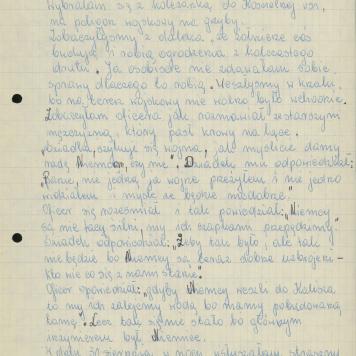 Wybrałam się z koleżanką do Kościelnej Wsi,
na poligon wojskowy na grzyby.
Zobaczyłyśmy z daleka, że żołnierze coś
budują i robią ogrodzenia z kolczastego
drutu. Ja osobiście nie zdawałam sobie
sprawy dlaczego to robią. Weszłyśmy w krzaki
bo na teren wojskowy nie wolno było wchodzić.
Zobaczyłam oficera jak rozmawiał ze starszym
mężczyzną, który pasł krowy na łące.
"Dziadku, szykuje się wojna, jak myślicie damy
radę Niemcom, czy nie". Dziadek mu odpowiedział:
"Panie, nie jedną ja wojnę przeżyłem i nie jedno
widziałem i myślę że będzie niedobrze."
Oficer się roześmiał i tak powiedział: "Niemcy
są nie tacy silni, my ich czapkami przepędzimy".
Dziadek odpowiedział: "Żeby tak było, ale tak
nie będzie bo Niemcy są teraz dobrze uzbrojeni -
kto wie co się z nami stanie".
Oficer opowiedział: "gdyby Niemcy weszli do Kalisza
to my ich zalejemy wodą bo mamy pobudowaną
tamę". Lecz tak się nie stało bo głównym
inżynierem był Niemiec.
Kiedy 31 sierpnia w nocy usłyszałam straszny